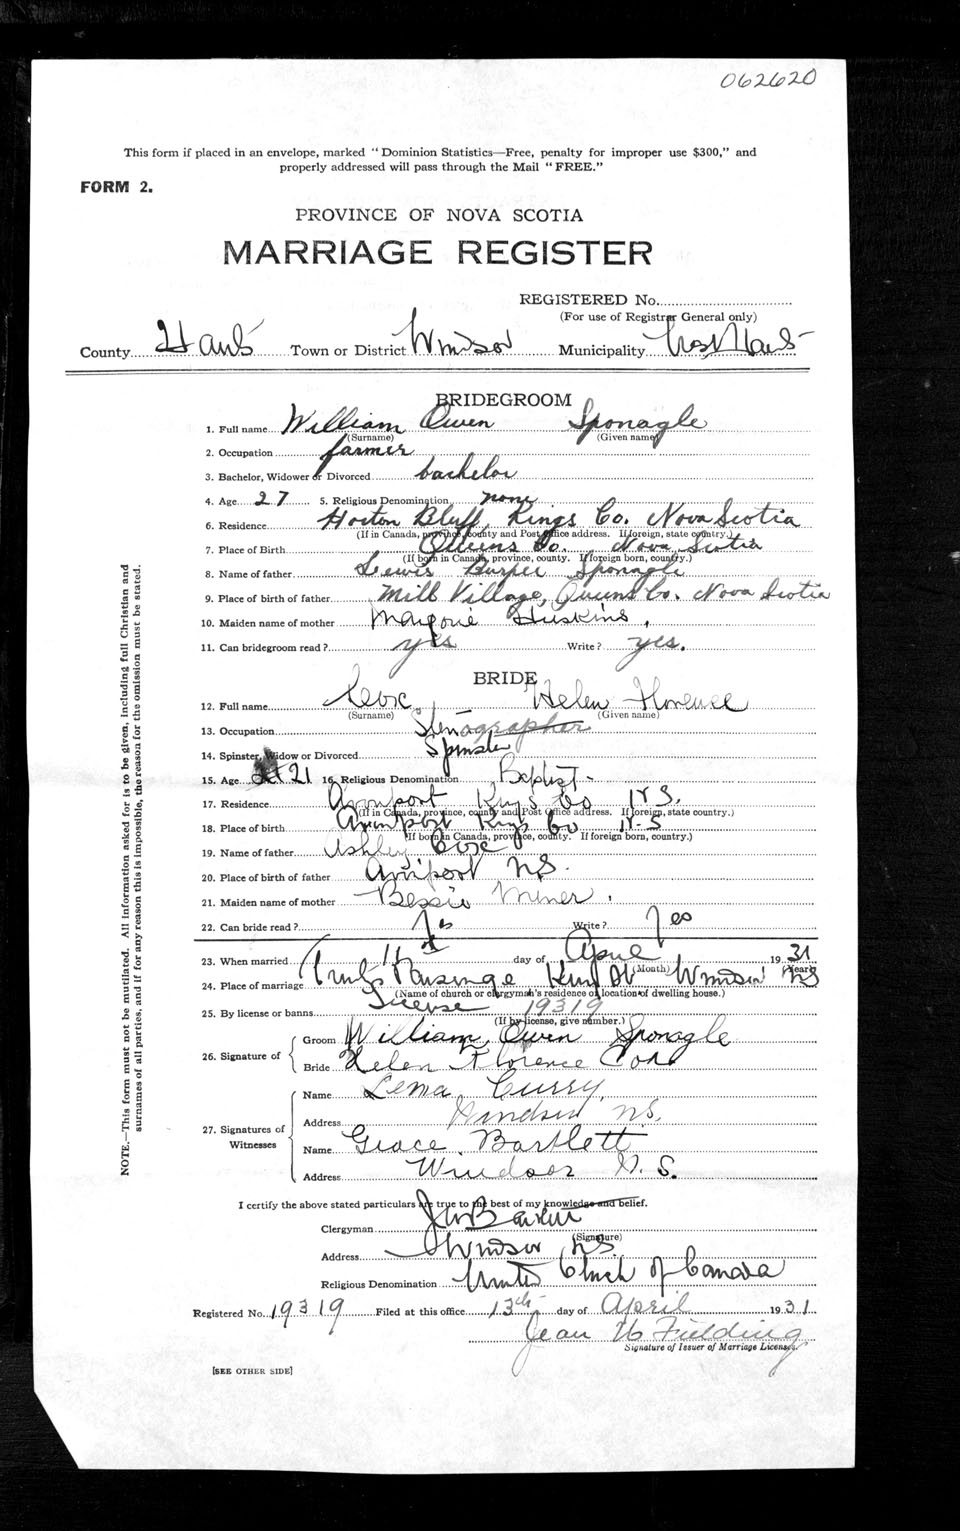 062620
This form if placed in an envelope, marked "Dominion Statistics—Free, penalty for improper use $300," and
properly addressed will pass through the Mail "FREE."
FORM 2.
PROVINCE OF NOVA SCOTIA
MARRIAGE REGISTER
REGISTERED No.
(For use of Registrar General only)
County Hants Town or District Windsor Municipality West Hants
BRIDEGROOM
1. Full name William Owen Sponagle
(Surname) (Given name)
2. Occupation farmer
3. Bachelor, Widower or Divorced bachelor
4. Age 27 5. Religious Denomination none
6. Residence Horton Bluff, Kings Co. Nova Scotia
(If in Canada, province, county and Post Office address. If foreign, state country.)
7. Place of Birth Queens Co. Nova Scotia
(If born in Canada, province, county. If foreign born, country.)
8. Name of father Lewis Burpee Sponagle
9. Place of birth of father Mill Village, Queens Co. Nova Scotia
10. Maiden name of mother Marjorie Huskins,
11. Can bridegroom read? yes Write? yes.
BRIDE
12. Full name Coxe Helen Florence
(Surname) (Given name)
13. Occupation Stenographer
14. Spinster, Widow or Divorced Spinster
15. Age 21 16. Religious Denomination Baptist
17. Residence Avonport Kings Co N.S.
(If in Canada, province, county and Post Office address. If foreign, state country.)
18. Place of birth Avonport Kings Co N.S
(If born in Canada, province, county. If foreign born, country.)
19. Name of father Ashley Coxe
20. Place of birth of father Avonport N.S.
21. Maiden name of mother Bessie Miner.
22. Can bride read? Yes Write? Yes
23. When married 11 day of April 1931
(Month) (Year)
24. Place of marriage Parsonage King St Windsor NS
(Name of church or clergyman's residence or location of dwelling house.)
25. By license or banns License 19319
(If by license, give number.)
26. Signature of
Groom William Owen Sponagle
Bride Helen Florence Coxe
27. Signatures of Witnesses
Name Lena Curry,
Address Windsor N.S.
Name Grace Bartlett
Address Windsor N.S.
I certify the above stated particulars are true to the best of my knowledge and belief.
Clergyman
(Signature)
Address Windsor NS.
Religious Denomination United Church of Canada
Registered No. 19319 Filed at this office 13th day of April 1931
Jean W Fielding
Signature of Issuer of Marriage Licenses.
[SEE OTHER SIDE]
NOTE.—This form must not be mutilated. All information asked for is to be given, including full Christian and
surnames of all parties, and if for any reason this is impossible, the reason for the omission must be stated.